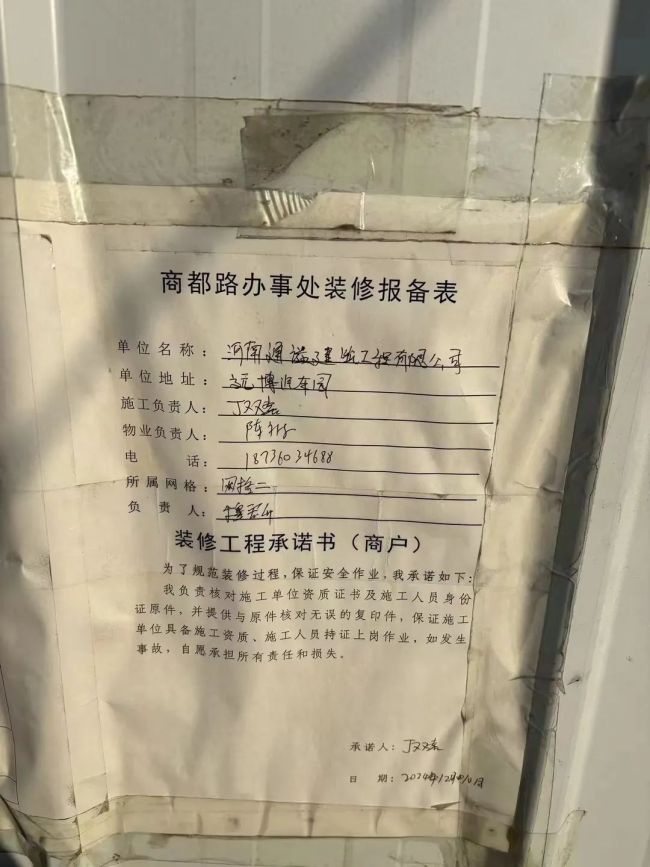 商都路办事处装修报备表
单位名称：河南通溢建筑工程有限公司
单位地址：远博汽车园
施工负责人：丁双喜
物业负责人：陈
电 话：18736034688
所属网格：网格二
负 责 人：
装修工程承诺书（商户）
为了规范装修过程，保证安全作业，我承诺如下：
我负责核对施工单位资质证书及施工人员身份
证原件，并提供与原件核对无误的复印件，保证施工
单位具备施工资质、施工人员持证上岗作业，如发生
事故，自愿承担所有责任和损失。
承诺人：丁双喜
日 期：2024年12月10日